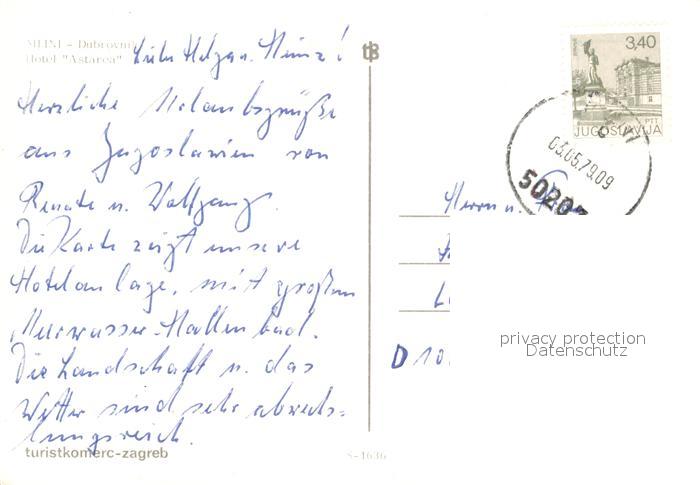 MLINI - Dubrovnik
Hotel "Astarea"
Liebe Helga u. Heinz!
Herzliche Urlaubsgrüße
aus Jugoslawien von
Renate u. Wolfgang.
Die Karte zeigt unsere
Hotelanlage, mit großem
Meerwasser-Hallenbad.
Die Landschaft u. das
Wetter sind sehr abwechs=
lungsreich.
turistkomerc-zagreb
S-1636
tB
3,40
PTT
JUGOSLAVIJA
03.05.79.09
50207
Herrn u.
D 10
privacy protection
Datenschutz